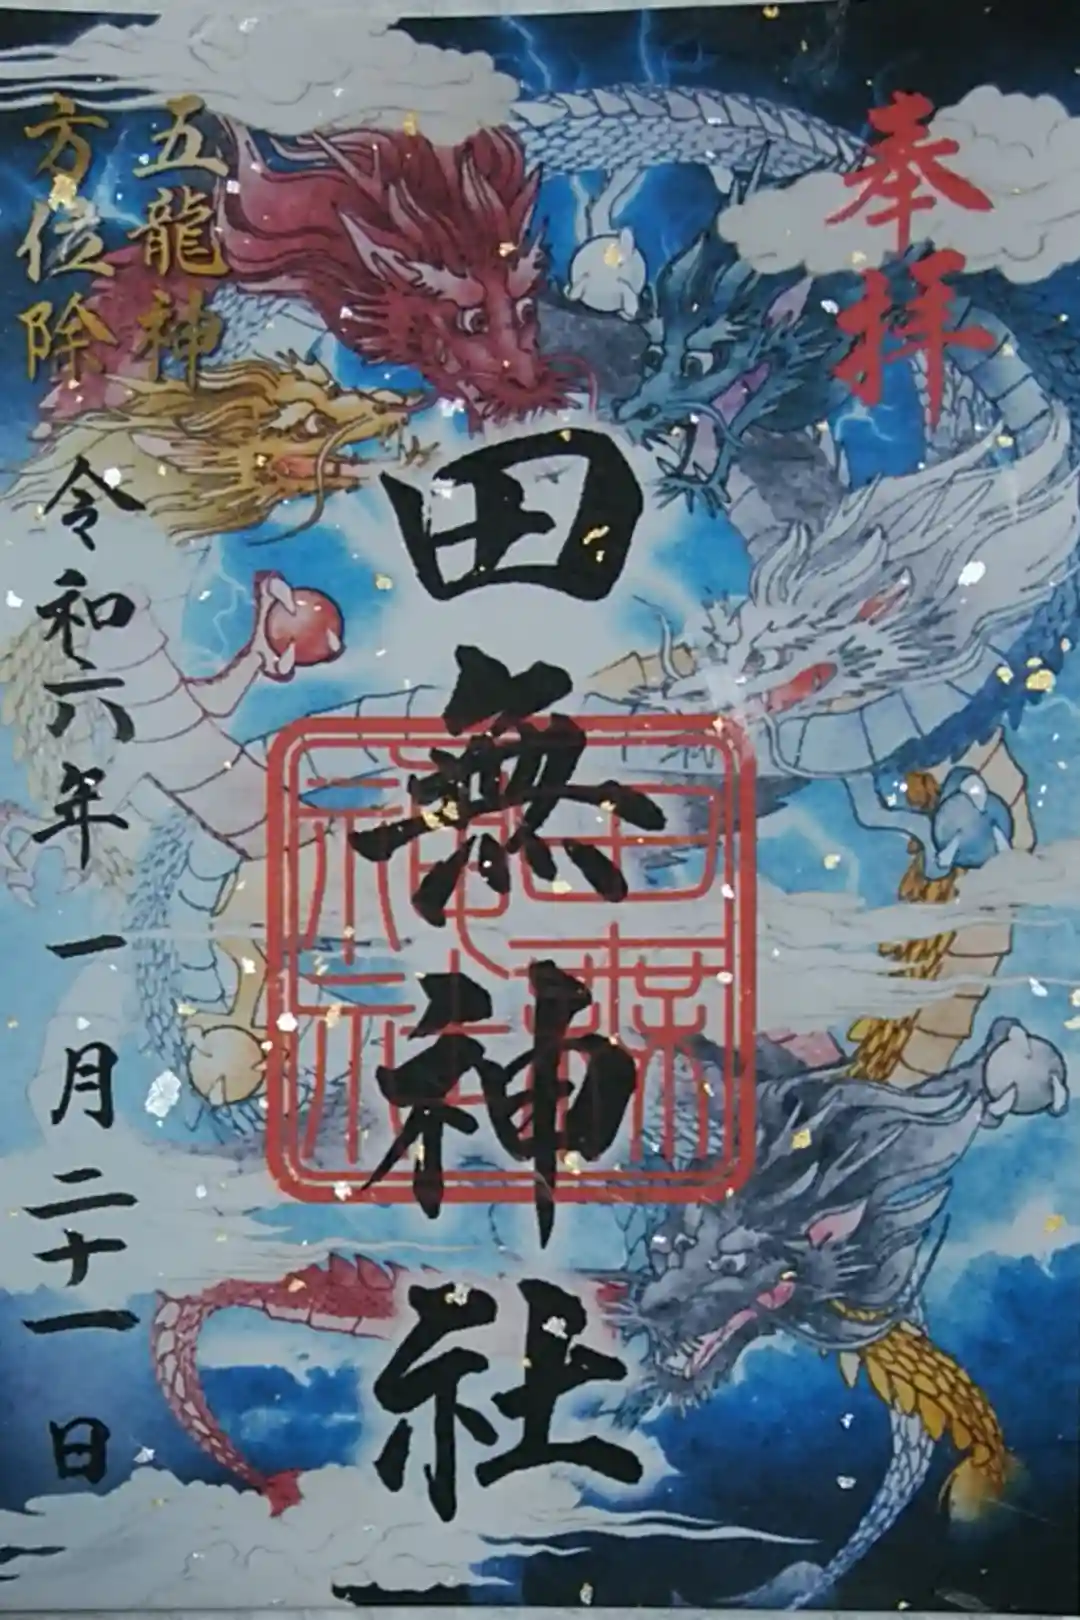 奉拝
五龍神
方位除
田無神社
田無神社
令和六年一月二十一日